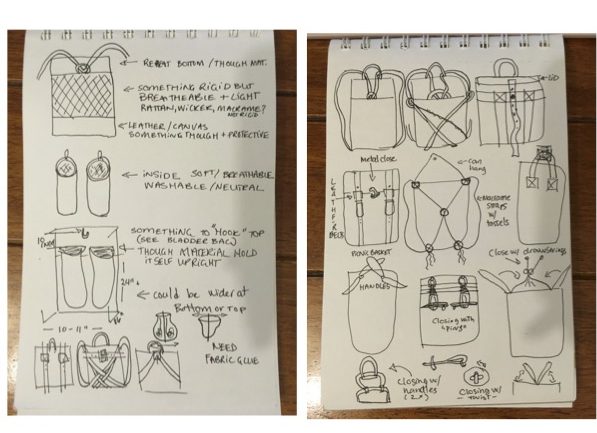 REPEAT BOTTOM / THOUGH MAT.
SOMETHING RIGID BUT
BREATHEABLE + LIGHT
RATTAN, WICKER, MACRAME?
NO RIGID
LEATHER/CANVAS
SOMETHING THOUGH + PROTECTIVE
INSIDE SOFT/BREATHABLE
WASHABLE / NEUTRAL
SOMETHING TO "HOOK" TOP
(SEE BLADDER BAG)
THOUGH MATERIAL MOLD
ITSELF UPRIGHT
24"
could be wider at
Bottom or top
10 - 11"
NEED
FABRIC GLUE
LID
Metal close
Can
hang
LEATHER
BELTS
Macrame
straps
w/
tassels
PICNIC BASKET
Close w/ drawstrings
HANDLES
Closing with
"pins"
Closing w/
handles
(2x)
Closing w/
- twist -